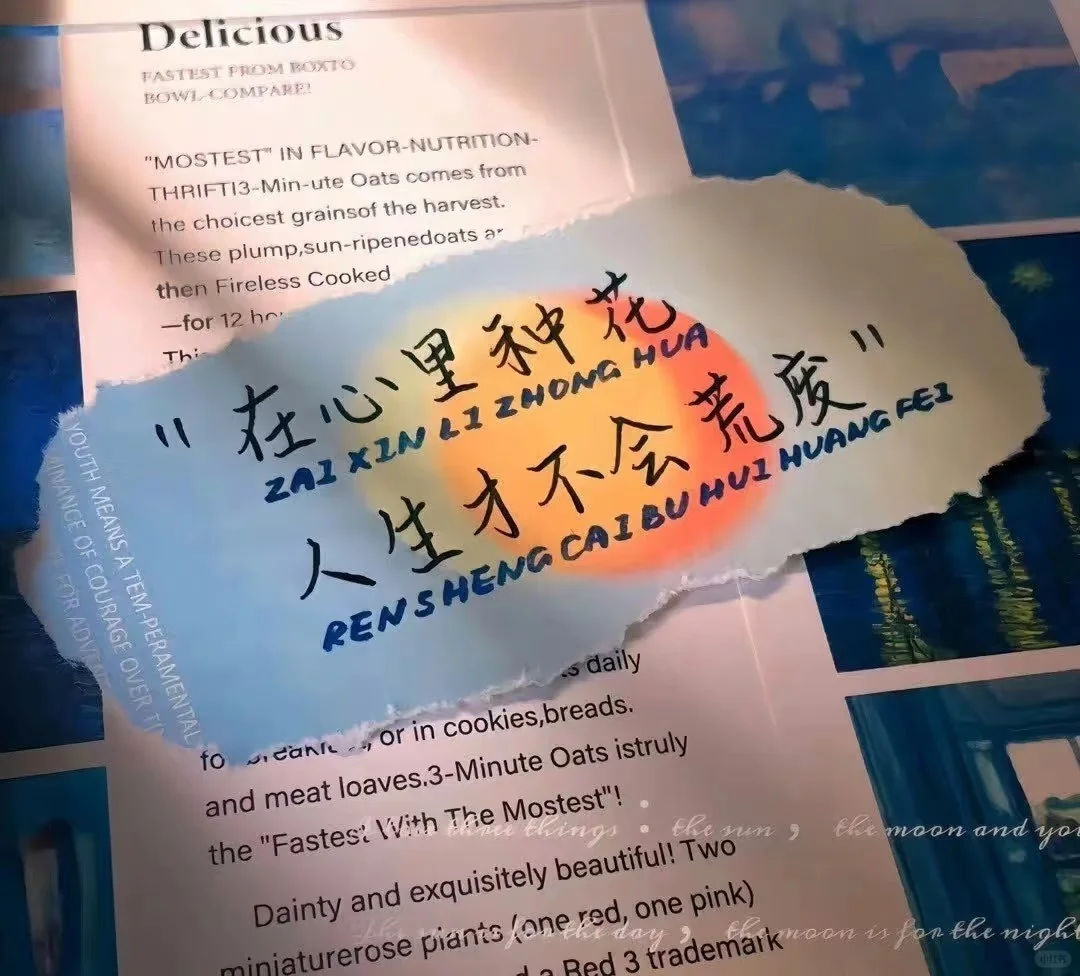 Delicious
FASTEST FROM BOXTO
BOWL-COMPARE!
"MOSTEST" IN FLAVOR-NUTRITION-
THRIFTI3-Min-ute Oats comes from
the choicest grainsof the harvest.
These plump,sun-ripenedoats
then Fireless Cooked
—for 12
"在心里种花
ZAI XIN LI ZHONG HUA
人生才不会荒废"
REN SHENG CAI BU HUI HUANG FEI
YOUTH MEANS A TEM-PERAMENTAL
OF COURAGE OVER
FOR
daily
or in cookies,breads.
and meat loaves.3-Minute Oats istruly
the "Fastest With The Mostest"!
three things • the sun , the moon and you
Dainty and exquisitely beautiful! Two
miniaturerose plants (one red, one pink)
the sun is for the day , the moon is for the night
a Red 3 trademark
小红书